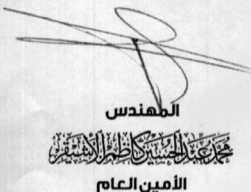 المهندس
محمد عبد الحسين كاظم الاشيقر
الأمين العام